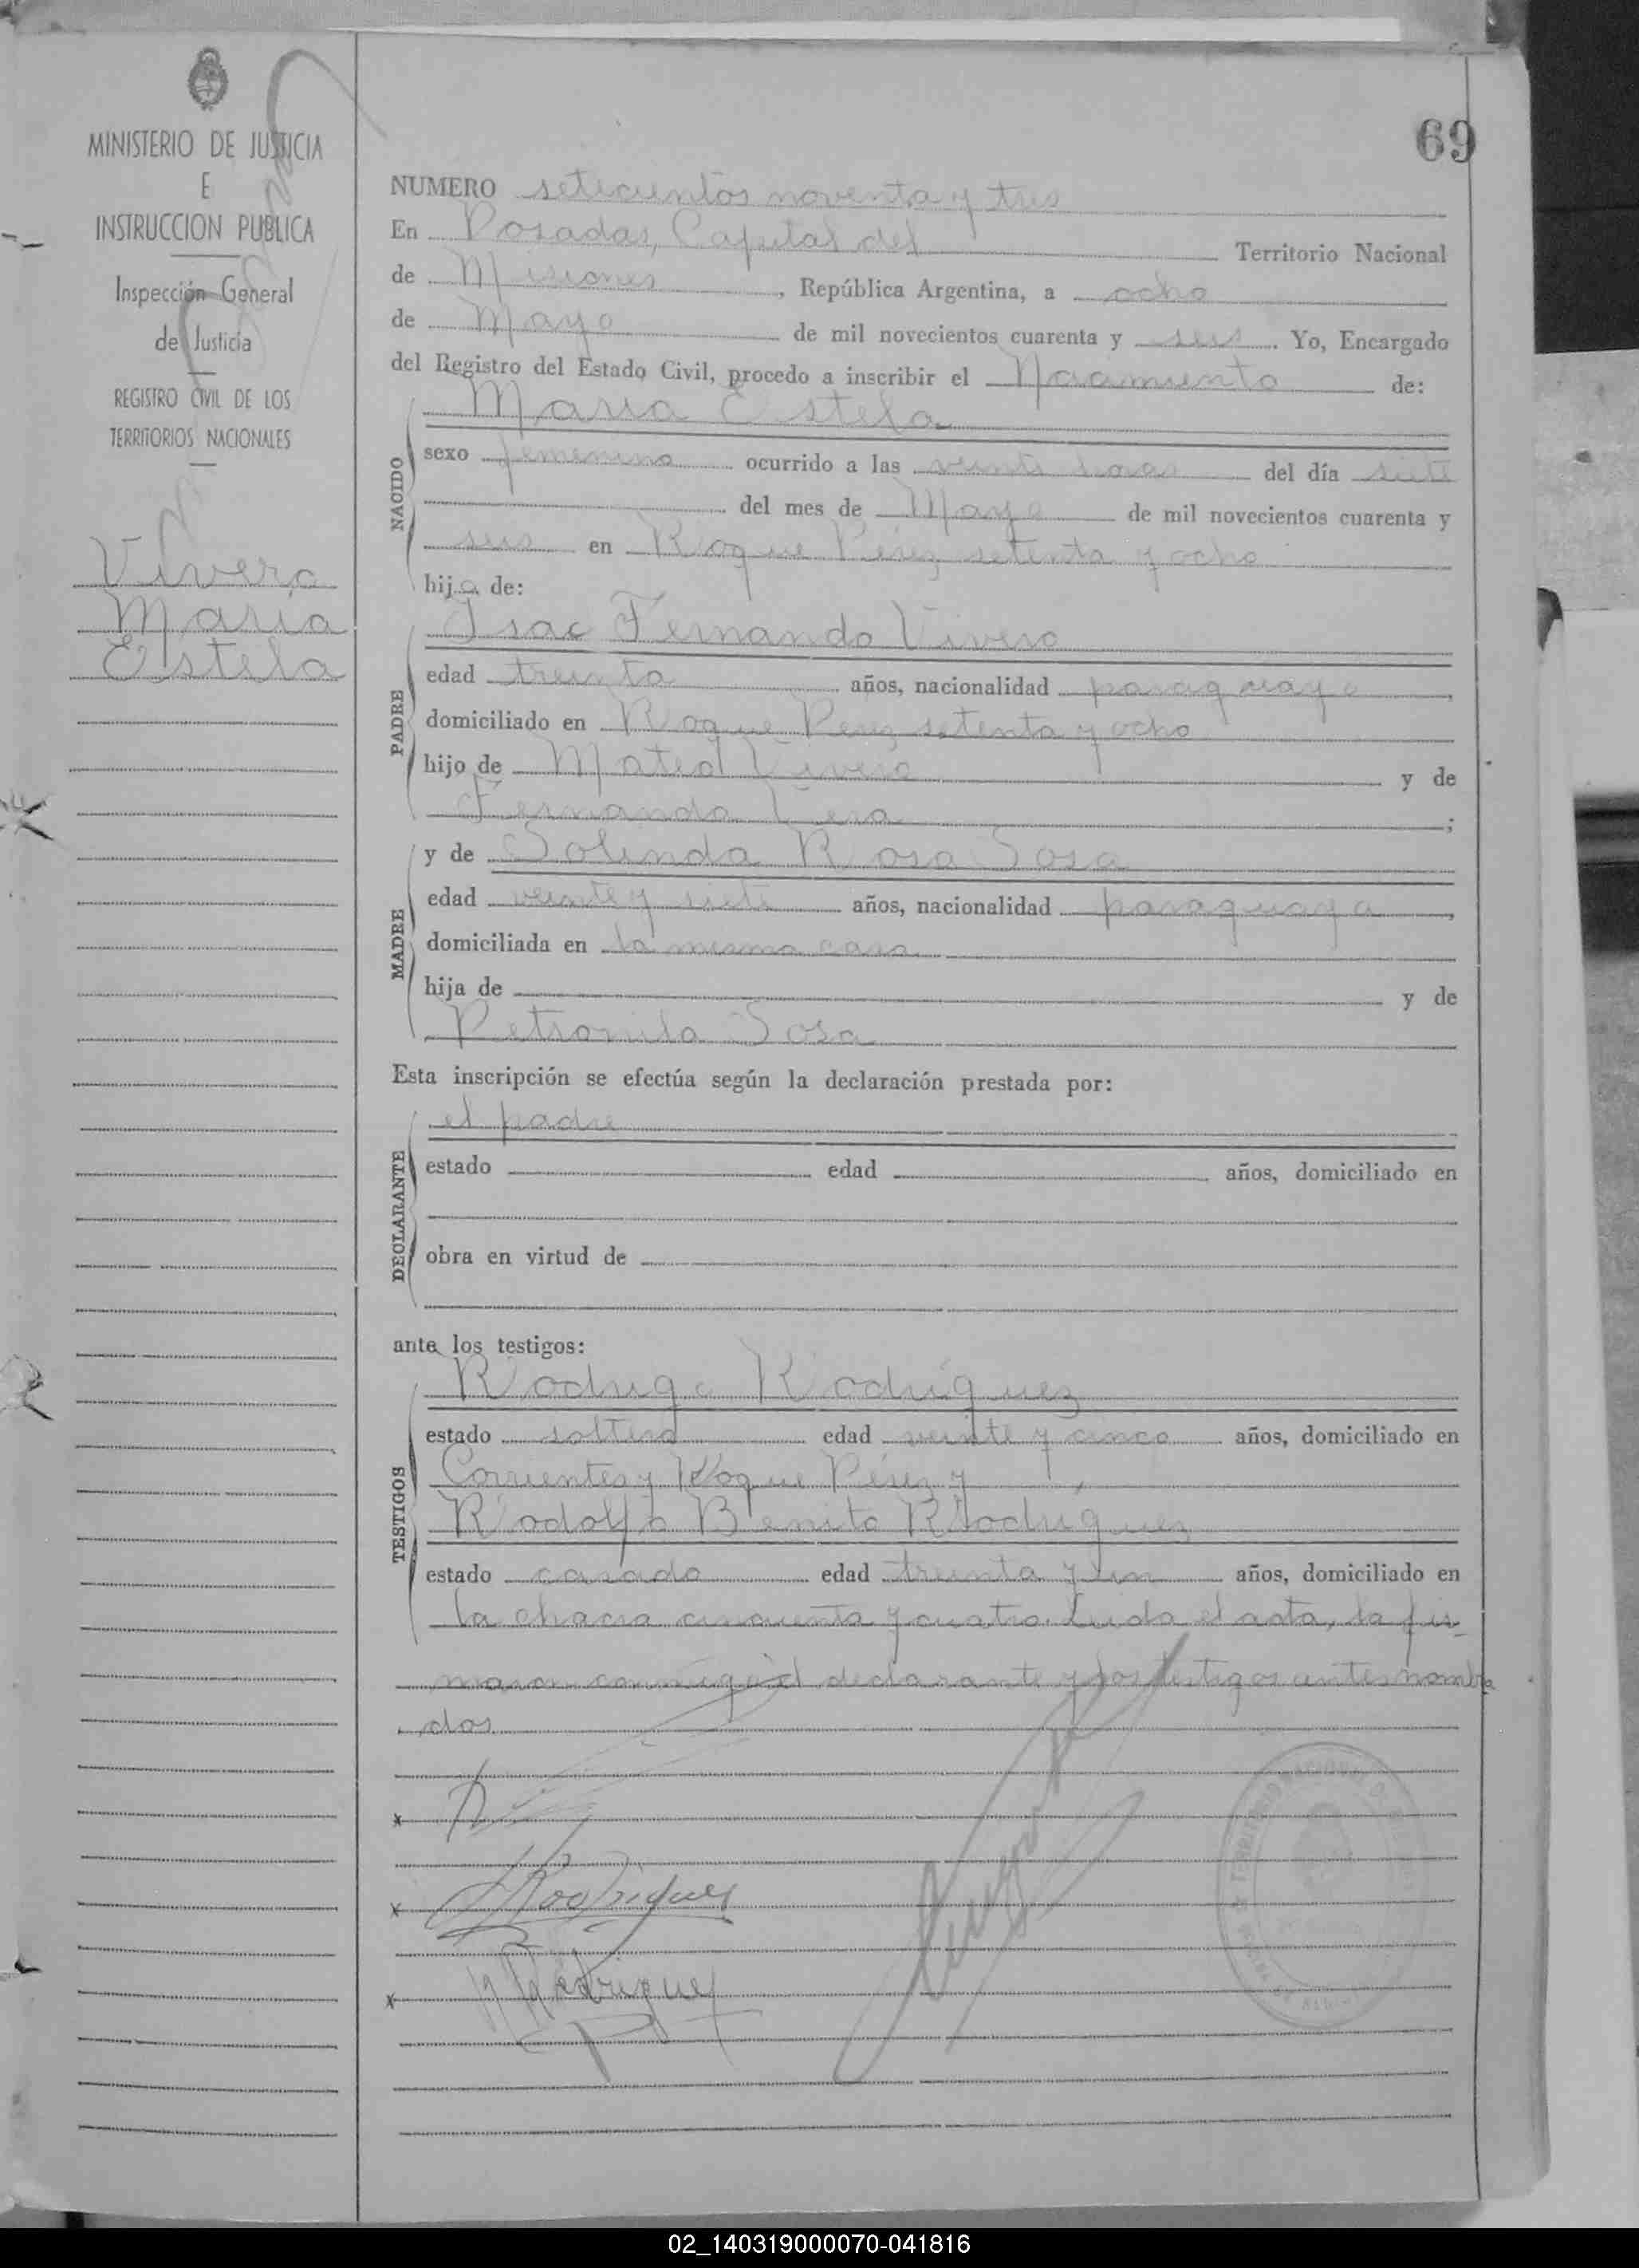 69
MINISTERIO DE JUSTICIA
E
INSTRUCCION PUBLICA
Inspección General
de Justicia
REGISTRO CIVIL DE LOS
TERRITORIOS NACIONALES
Vivero
María
Estela
NUMERO setecientos noventa y tres
En Posadas, Capital del Territorio Nacional
de Misiones, República Argentina, a ocho
de Mayo de mil novecientos cuarenta y seis. Yo, Encargado
del Registro del Estado Civil, procedo a inscribir el Nacimiento de:
María Estela
NACIDO
sexo femenino ocurrido a las veinte horas del día siete
del mes de Mayo de mil novecientos cuarenta y
seis en Roque Pérez setenta y ocho
hija de:
PADRE
Isac Fernando Vivero
edad treinta años, nacionalidad paraguaya,
domiciliado en Roque Perez setenta y ocho
hijo de Mateo Vivero y de
Fernanda Vera;
MADRE
y de Solinda Rosa Sosa
edad veinte y siete años, nacionalidad paraguaya,
domiciliada en la misma casa
hija de y de
Petronila Sosa
Esta inscripción se efectúa según la declaración prestada por:
DECLARANTE
el padre
estado edad años, domiciliado en
obra en virtud de
ante los testigos:
TESTIGOS
Rodrigo Rodríguez
estado soltero edad veinte y cinco años, domiciliado en
Corrientes y Roque Pérez y
Rodolfo Benito Rodríguez
estado casado edad treinta y un años, domiciliado en
la chacra cincuenta y cuatro. Leida el acta, la fir-
maron conmigo el declarante y los testigos antes nombra
dos
Rodriguez
Rodriguez
02_140319000070-041816